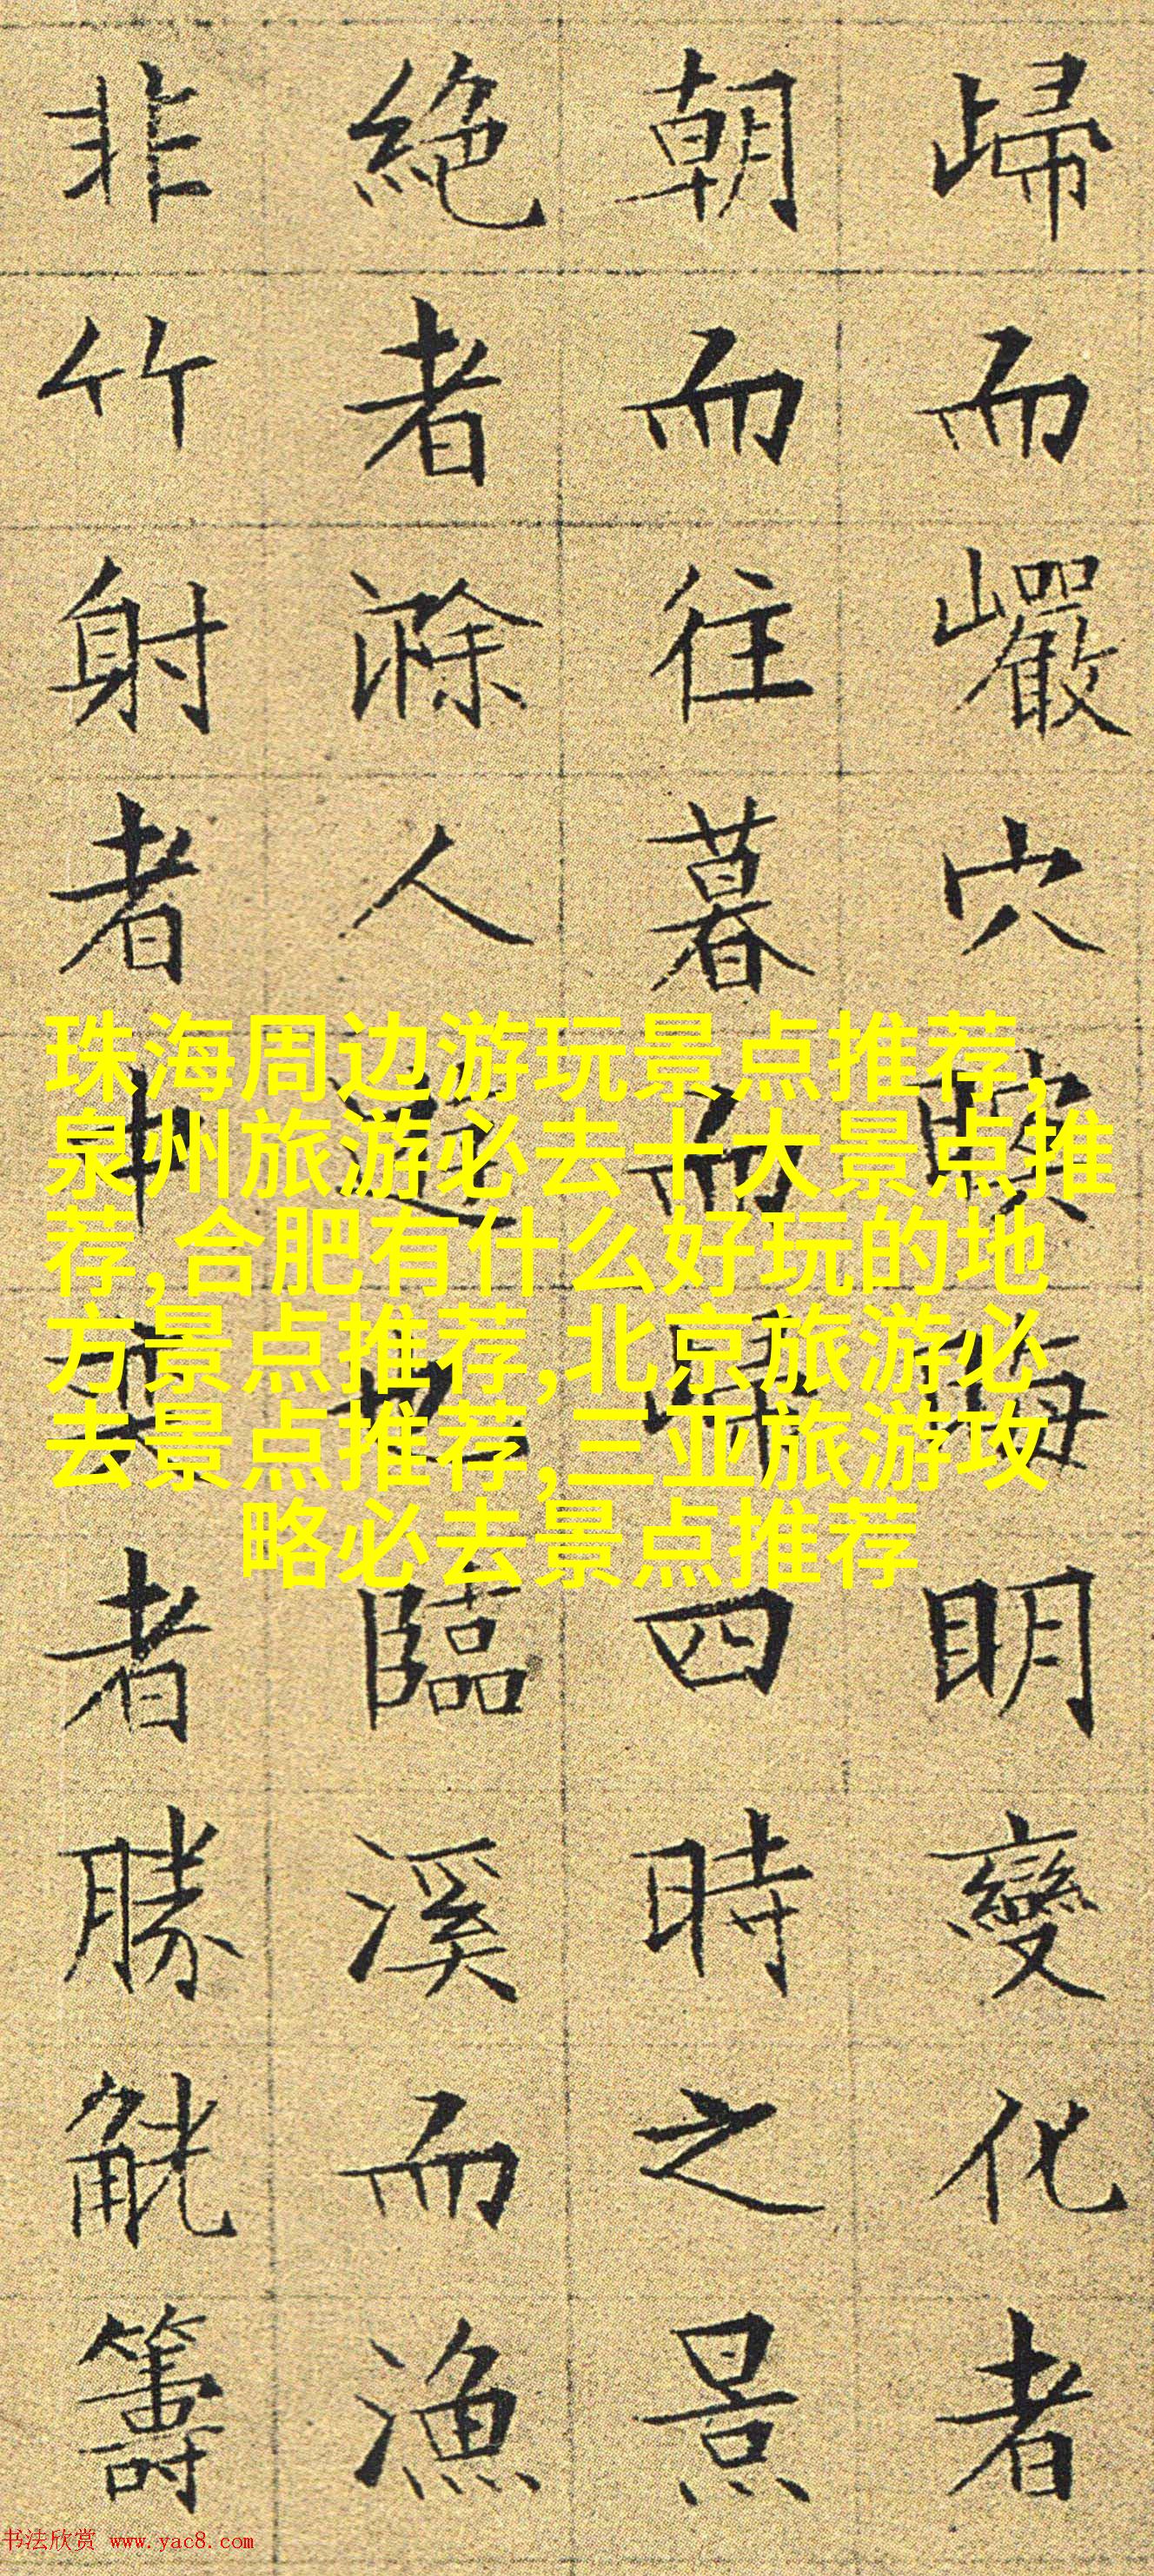 歸而巖穴暝晦明變化者
朝而往暮而歸四時之景
絕者滁人遊也臨溪而漁
非竹射者中者勝觥籌
珠海周边游玩景点推荐,
泉州旅游必去十大景点推
荐,合肥有什么好玩的地
方景点推荐,北京旅游必
去景点推荐,三亚旅游攻
略必去景点推荐
书法欣赏 www.yac8.com